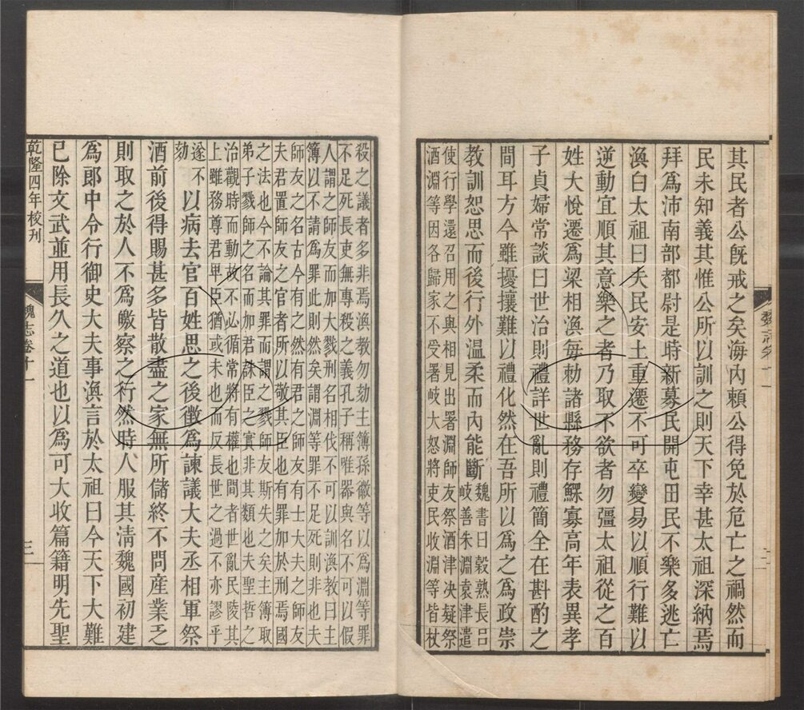 其民者公旣戒之矣海內賴公得免於危亡之禍然而
民未知義其惟公所以訓之則天下幸甚太祖深納焉
拜爲沛南部都尉是時新募民開屯田民不樂多逃亡
渙白太祖曰夫民安土重遷不可卒變易以順行難以
逆動宜順其意樂之者乃取不欲者勿彊太祖從之百
姓大悅遷爲梁相渙每勅諸縣務存鰥寡高年表異孝
子貞婦常談曰世治則禮詳世亂則禮簡全在斟酌之
間耳方今雖擾攘難以禮化然在吾所以爲之爲政崇
教訓恕思而後行外溫柔而內能斷
魏書曰穀熟長呂
岐善朱淵袁津遣
使行學還召用之與相見出署淵師友祭酒津決疑祭
酒淵等因各歸家不受署岐大怒將吏民收淵等皆杖
殺之議者多非焉渙教勿劾主簿孫徽等以爲淵等罪
不足死長吏無專殺之義孔子稱唯器與名不可以假
人謂之師友而加大戮刑名相伐不可以訓渙教曰主
簿以不請爲罪此則然矣謂淵等罪不足死則非也夫
師友之名古今有之然有君之師友有士大夫之師友
夫君置師友之官者所以敬其臣也有罪加於刑焉國
之法也今不論其罪而謂之戮師友斯失之矣主簿取
弟子戮師之名而加君誅臣之實非其類也夫聖哲之
治觀時而動故不必循常將有權也間者世亂民陵其
上雖務尊君卑臣猶或未也而反長世之過不亦謬乎
遂不
劾
以病去官百姓思之後徵爲諫議大夫丞相軍祭
酒前後得賜甚多皆散盡之家無所儲終不問產業乏
則取之於人不爲皦察之行然時人服其清魏國初建
爲郎中令行御史大夫事渙言於太祖曰今天下大難
已除文武並用長久之道也以爲可大收篇籍明先聖
乾隆四年校刊
魏志卷十一
三